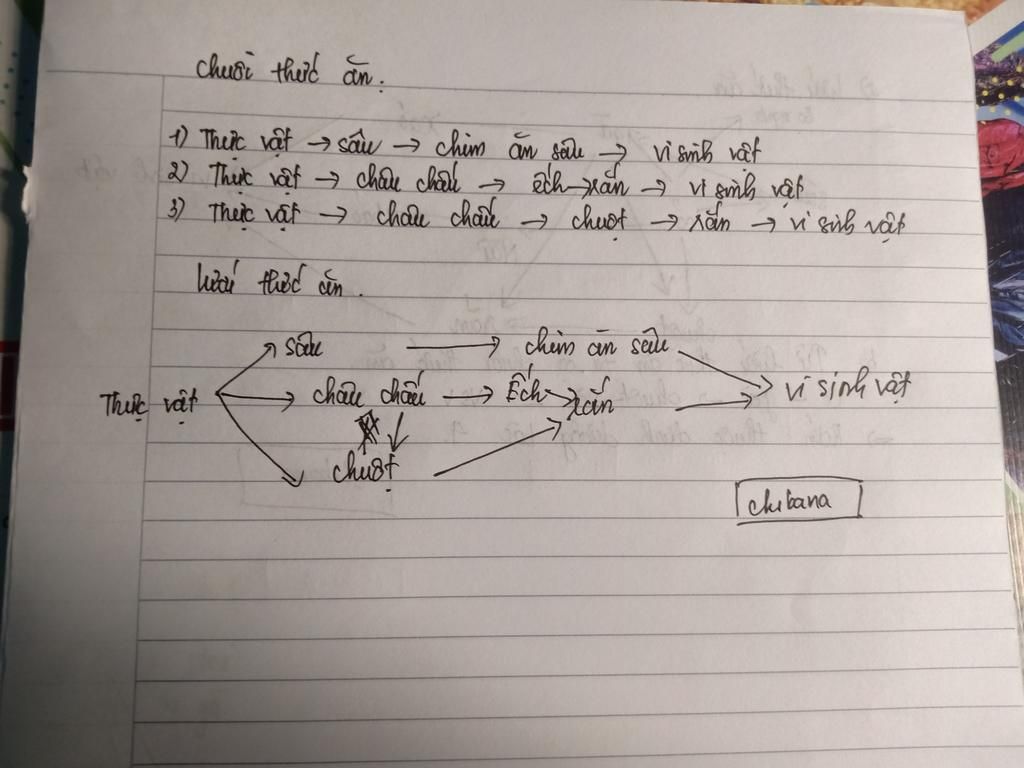 chuỗi thức ăn:
1) Thực vật → sâu → chim ăn sâu → vi sinh vật
2) Thực vật → châu chấu → ếch → rắn → vi sinh vật
3) Thực vật → châu chấu → chuột → rắn → vi sinh vật
lưới thức ăn.
sâu → chim ăn sâu
Thực vật → châu chấu → Ếch → rắn → vi sinh vật
chuột
chibana